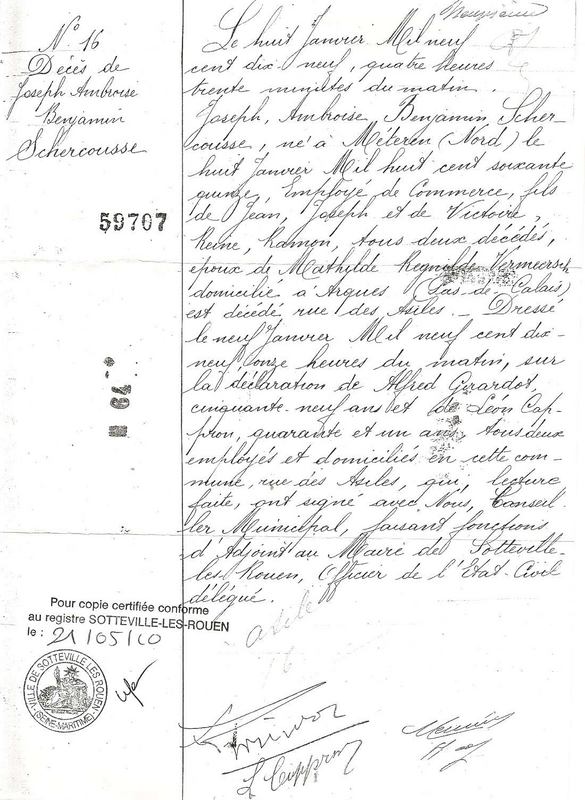 N° 16
Décès de
Joseph Ambroise
Benjamin
Schercousse
59707
64
Le huit Janvier Mil neuf
cent dix neuf, quatre heures
trente minutes du matin.
Joseph, Ambroise Benjamin Scher-
cousse, né à Méteren (Nord) le
huit Janvier Mil huit cent soixante
quinze, Employé de Commerce, fils
de Jean, Joseph et de Victoire,
Reine, Ramon, tous deux décédés,
époux de Mathilde Vermeersch
domicilié à Arques (Pas-de-Calais)
est décédé rue des Asiles. – Dressé
le neuf Janvier Mil neuf cent dix-
neuf, onze heures du matin, sur
la déclaration de Alfred Girardot,
cinquante-neuf ans et de Léon Cap-
pron, quarante et un ans, tous deux
employés et domiciliés en cette com-
mune, rue des Asiles, qui, lecture
faite, ont signé avec Nous, Conseil-
ler Municipal, faisant fonctions
d'Adjoint au Maire de Sotteville-
les-Rouen, Officier de l'Etat-Civil
délégué.
asile
Pour copie certifiée conforme
au registre SOTTEVILLE-LES-ROUEN
le : 21/05/10
VILLE DE SOTTEVILLE LES ROUEN
(SEINE-MARITIME)
L Cappron